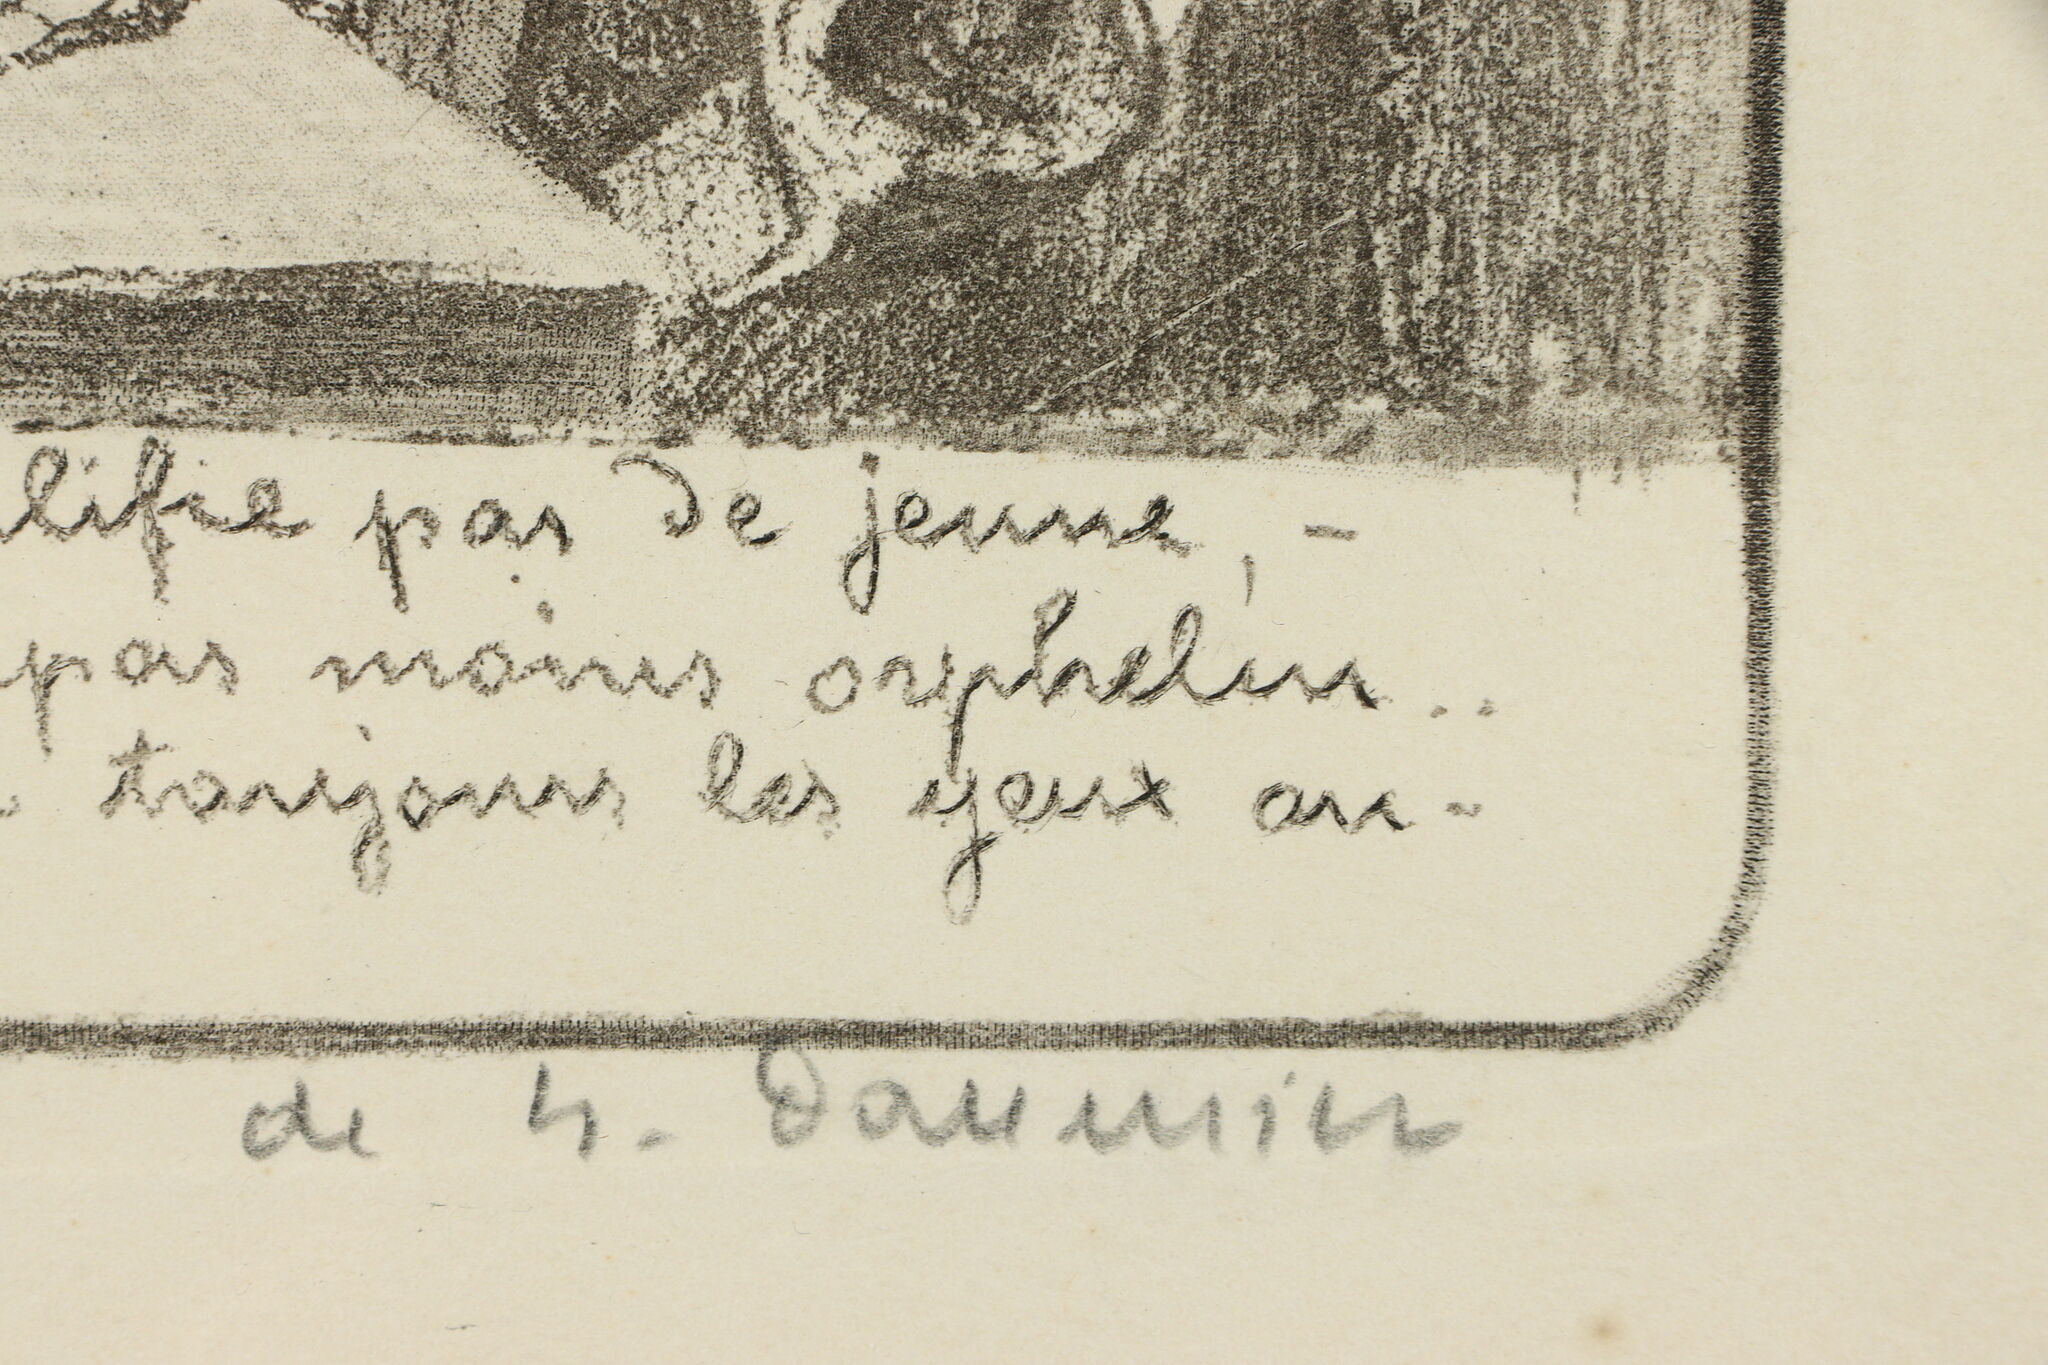 lifie pas de jeune, -
pas moins orphelin..
toujours les yeux au-
de h. Daumier